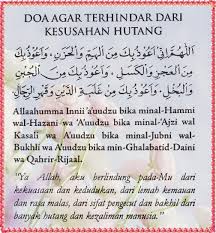 DOA AGAR TERHINDAR DARI
KESUSAHAN HUTANG
اَللّٰهُمَّ اِنِّيْ اَعُوْذُ بِكَ مِنَ الْهَمِّ وَالْحَزَنِ، وَاَعُوْذُ بِكَ
مِنَ الْعَجْزِ وَالْكَسَلِ، وَاَعُوْذُ بِكَ مِنَ الْجُبْنِ
وَالْبُخْلِ وَاَعُوْذُ بِكَ مِنْ غَلَبَةِ الدَّيْنِ وَقَهْرِ الرِّجَالِ
Allaahumma Innii a'uudzu bika minal-Hammi
wal-Hazani wa A'uudzu bika minal-'Ajzi wal
Kasali wa A'uudzu bika minal-Jubni wal-
Bukhli wa A'uudzu bika min-Ghalabatid-Daini
wa Qahrir-Rijaal.
"Ya Allah, aku berlindung pada-Mu dari
kekuaisaan dan kedudukan, dari lemah kemauan
dan rasa malas, dari sifat pengecut dan bakhil dari
banyak hutang dan kezaliman manusia."